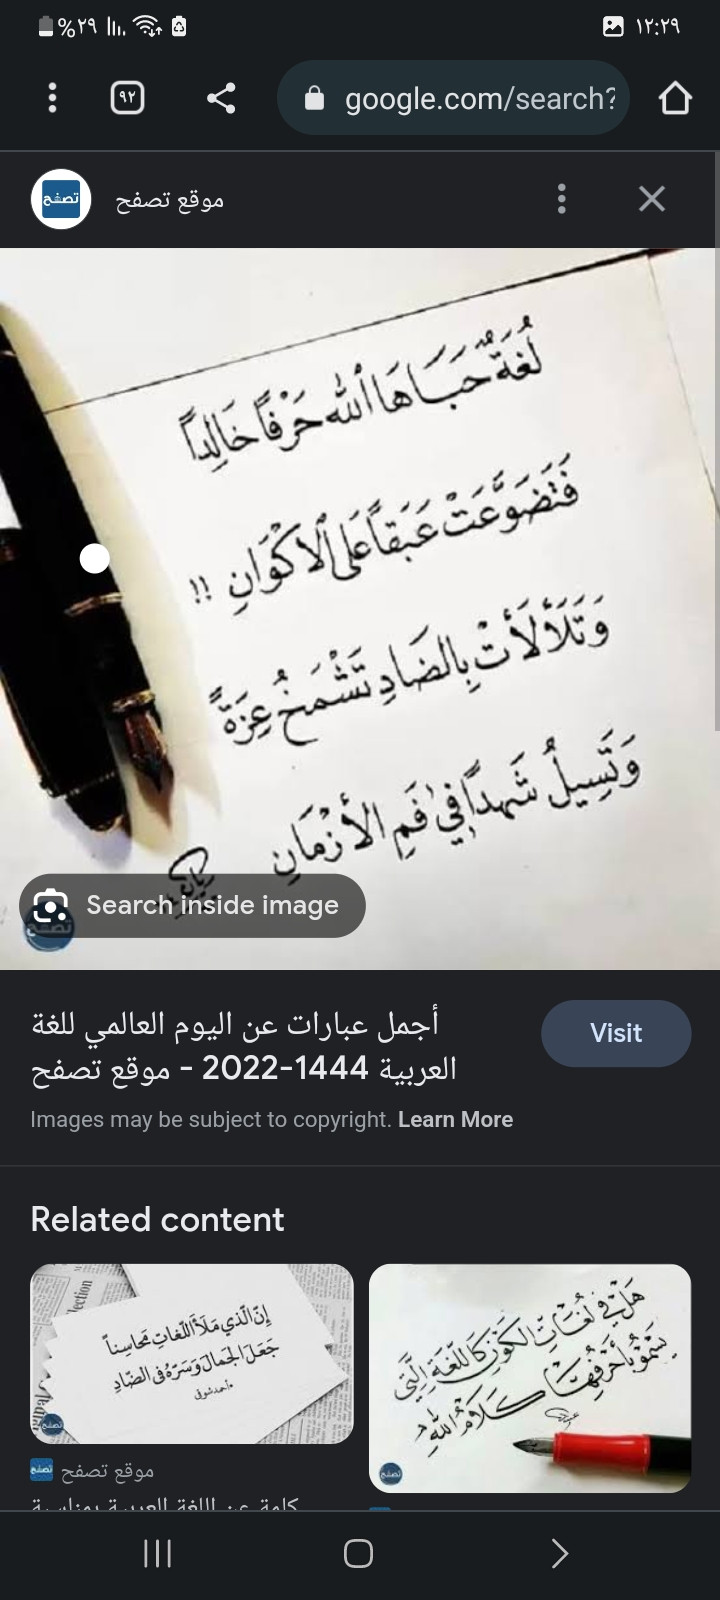 %٢٩
١٢:٢٩
٩٢
google.com/search?
تصفح
موقع تصفح
لُغَةٌ حَبَاهَا اللهُ حَرْفًا خَالِدًا
فَتَضَوَّعَتْ عَبَقًا عَلَى الْأَكْوَانِ !!
وَتَلَأْلَأَتْ بِالضَادِ تَشْمَخُ عِزَةً
وَتَسِيلُ شَهدًا في فَمِ الأَزْمَانِ
Search inside image
تصفح
أجمل عبارات عن اليوم العالمي للغة
العربية 1444-2022 - موقع تصفح
Visit
Images may be subject to copyright. Learn More
Related content
lection
إنّ الّذي مَلَأَ اللّغاتِ مَحَاسِناً
جَعَلَ الجَمالَ وَسَرّهُ في الضّادِ
أحمد شوقي
تصفح
هَلْ في لُغَاتِ الكَوْنِ كَاللُّغَةِ الَّتِي
يَسْمُو بِأَحْرُفِهَا كَلَامُ اللهِ
تصفح
تصفح موقع تصفح
كلمة عن اللغة العربية بمناسبة